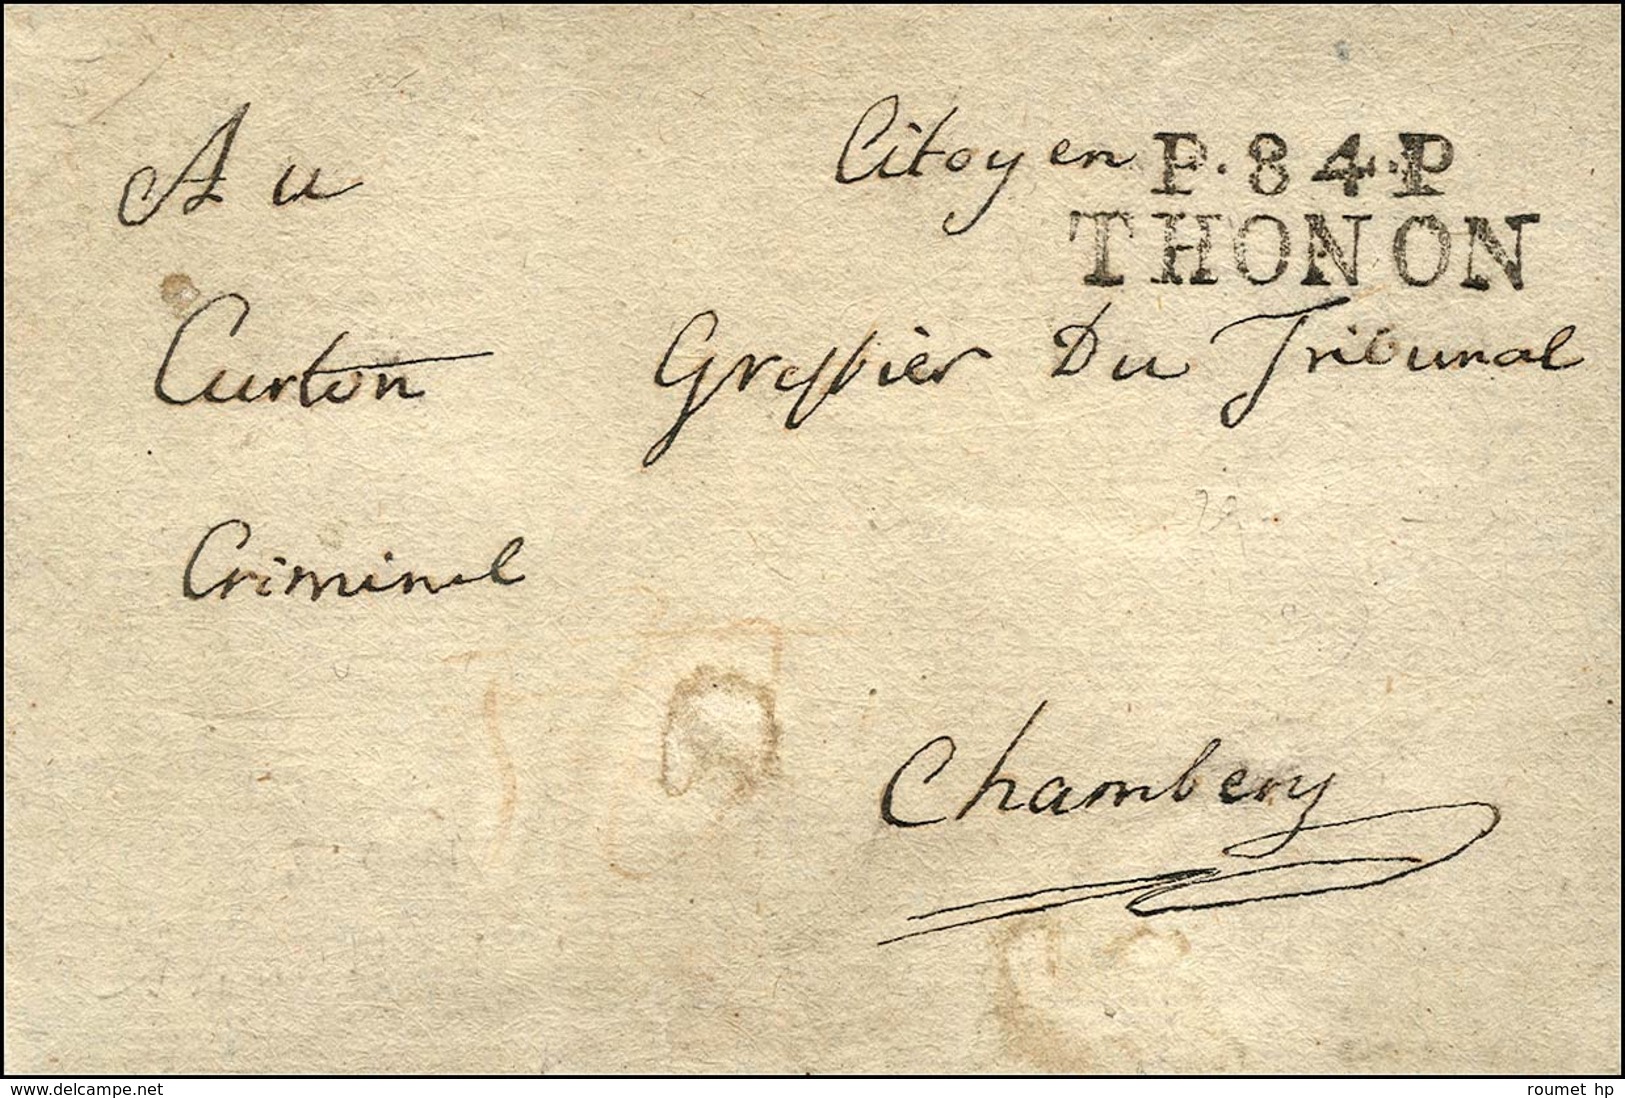 Au Citoyen P.84.P
THONON
Curton Greffier Du Tribunal
Criminel
Chambery
www.delcampe.net roumet hp